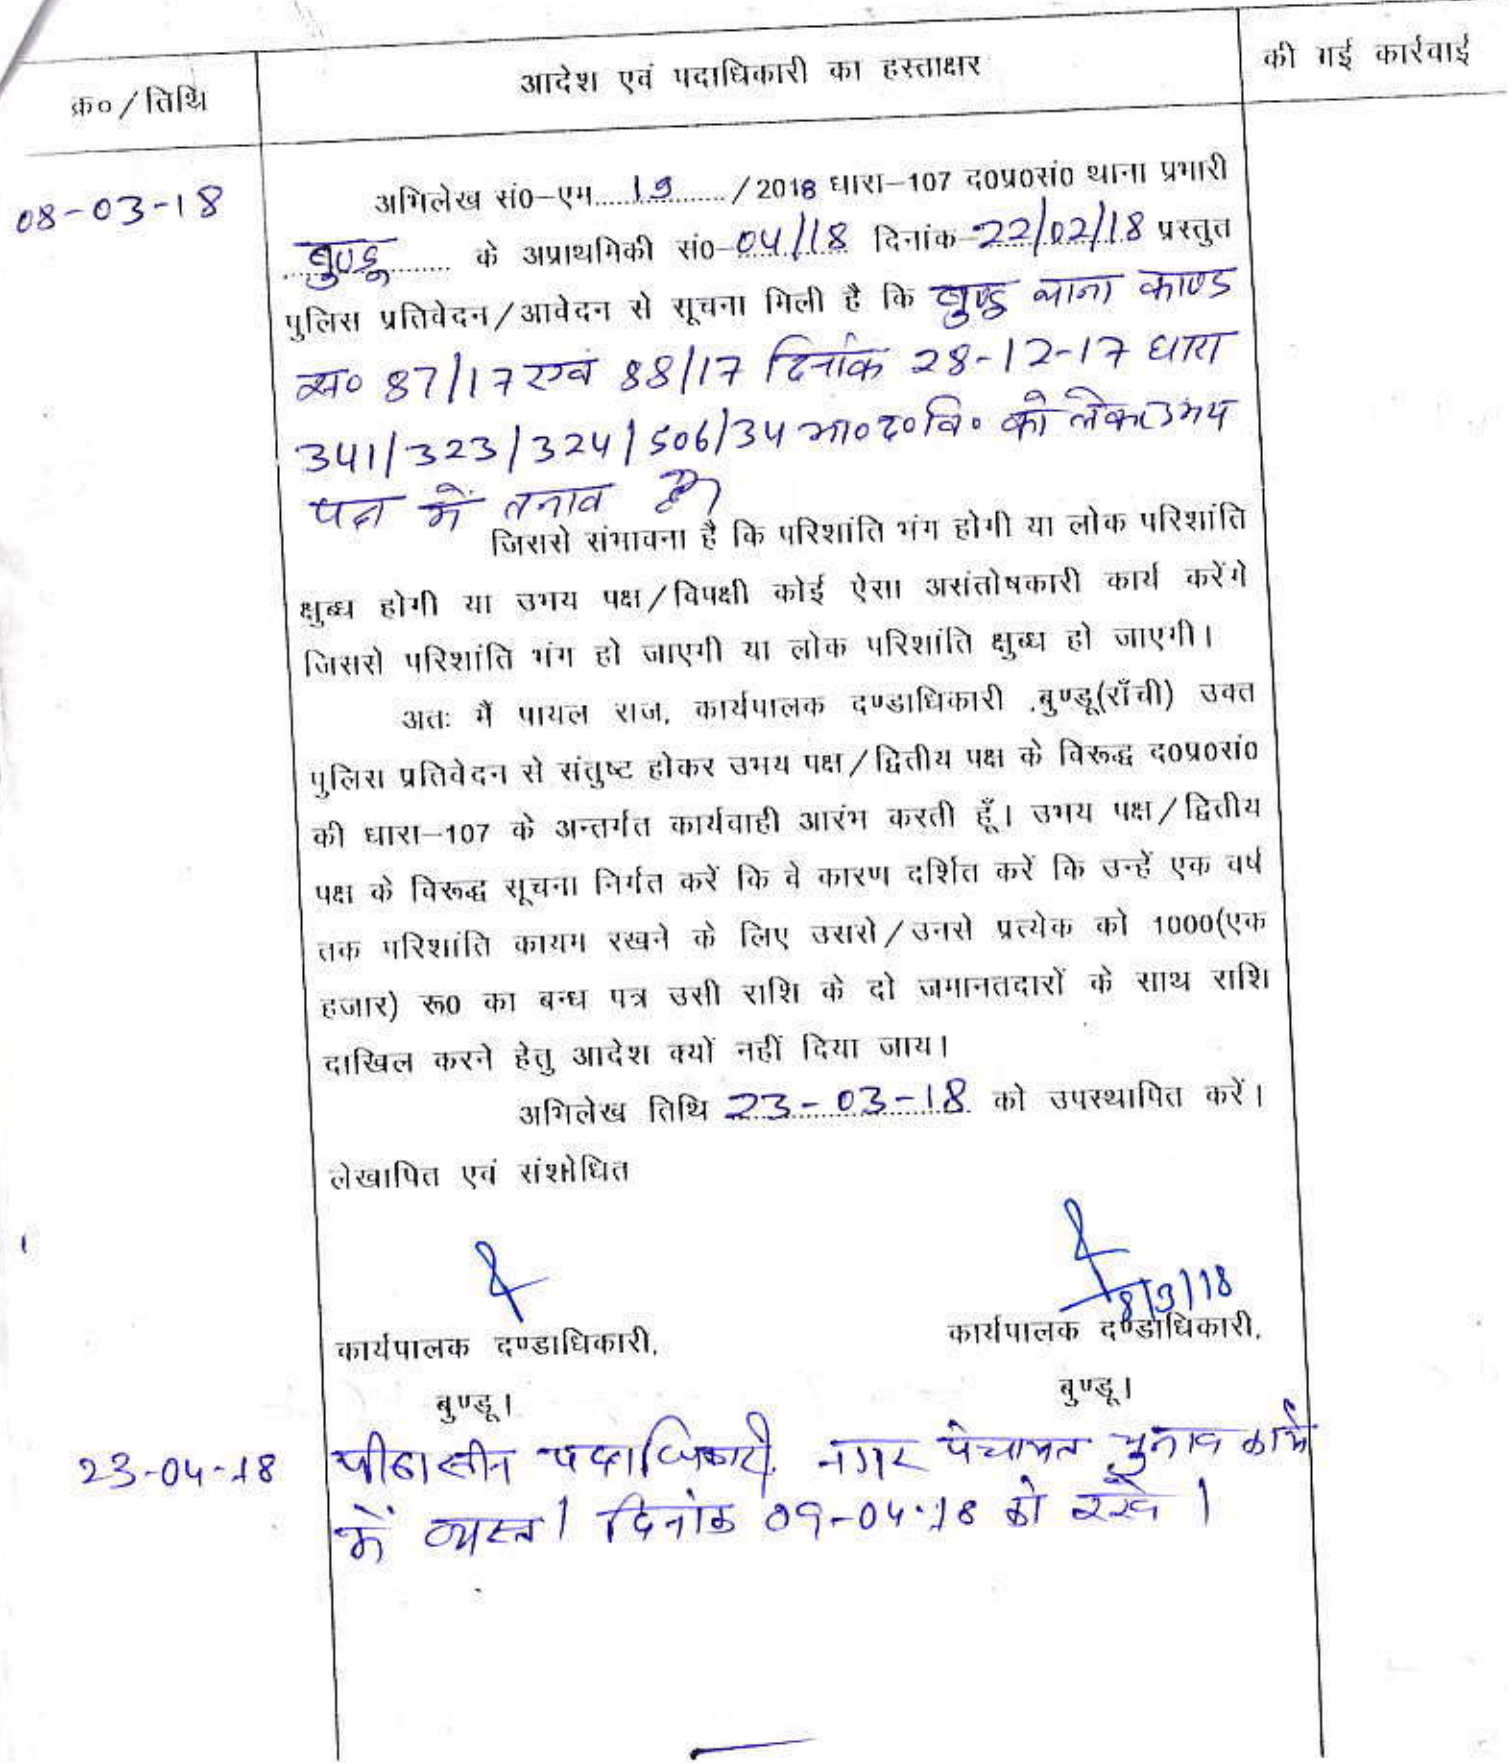 क्र०/तिथि
आदेश एवं पदाधिकारी का हस्ताक्षर
की गई कार्रवाई
08-03-18
अभिलेख सं0-एम...19.../2018 धारा-107 द0प्र0सं0 थाना प्रभारी
बुण्डू के अप्राथमिकी सं0-04/18 दिनांक-22/02/18 प्रस्तुत
पुलिस प्रतिवेदन/आवेदन से सूचना मिली है कि बुण्डु थाना काण्ड
स० 87/17 एवं 88/17 दिनांक 28-12-17 धारा
341/323/324/506/34 भा०द०वि० को लेकर उभय
पक्ष में तनाव है।
जिससे संभावना है कि परिशांति भंग होगी या लोक परिशांति
क्षुब्ध होगी या उभय पक्ष/विपक्षी कोई ऐसा असंतोषकारी कार्य करेंगे
जिससे परिशांति भंग हो जाएगी या लोक परिशांति क्षुब्ध हो जाएगी।
अतः मैं पायल राज, कार्यपालक दण्डाधिकारी ,बुण्डू(राँची) उक्त
पुलिस प्रतिवेदन से संतुष्ट होकर उभय पक्ष/द्वितीय पक्ष के विरूद्ध द0प्र0सं0
की धारा-107 के अन्तर्गत कार्यवाही आरंभ करती हूँ। उभय पक्ष/द्वितीय
पक्ष के विरूद्ध सूचना निर्गत करें कि वे कारण दर्शित करें कि उन्हें एक वर्ष
तक परिशांति कायम रखने के लिए उससे/उनसे प्रत्येक को 1000(एक
हजार) रू0 का बन्ध पत्र उसी राशि के दो जमानतदारों के साथ राशि
दाखिल करने हेतु आदेश क्यों नहीं दिया जाय।
अभिलेख तिथि 23-03-18 को उपस्थापित करें।
लेखापित एवं संशोधित
8/3/18
कार्यपालक दण्डाधिकारी,
कार्यपालक दण्डाधिकारी,
बुण्डू।
बुण्डू।
23-04-18
पीठासीन पदाधिकारी, नगर पंचायत चुनाव कार्य
में व्यस्त। दिनांक 09-04-18 को रखें।